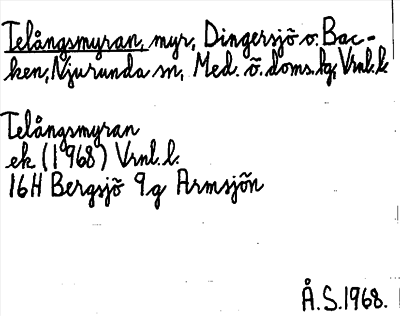 Telångsmyran, myr, Dingersjö o. Bac-
ken, Njurunda sn, Med. ö. doms.hg, Vrnl.l.
Telångsmyran
ek (1968) Vrnl.l.
16H Bergsjö 9g Armsjön
Å.S.1968.